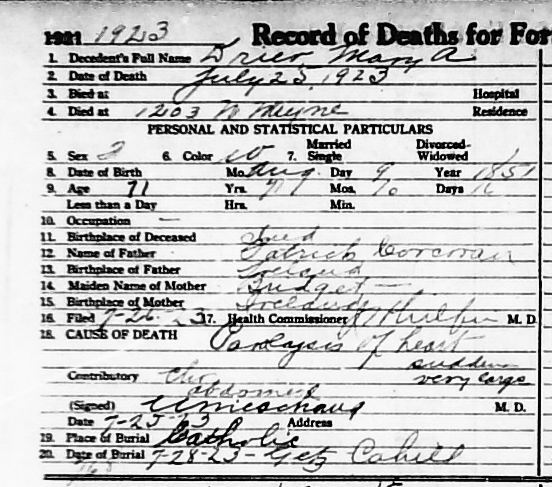 1921 1923 Record of Deaths for For
1. Decedent's Full Name Drier Mary A
2. Date of Death July 25, 1923
3. Died at Hospital
4. Died at 1203 W Wayne Residence
PERSONAL AND STATISTICAL PARTICULARS
5. Sex 6. Color W 7. Married Single Divorced- Widowed
8. Date of Birth Mo. Aug. Day 9 Year 1851
9. Age 71 Yrs. 71 Mos. Days 16
Less than a Day Hrs. Min.
10. Occupation —
11. Birthplace of Deceased Ind
12. Name of Father Patrick Corcoran
13. Birthplace of Father Ireland
14. Maiden Name of Mother Bridget —
15. Birthplace of Mother Ireland
16. Filed 7-26-23 17. Health Commissioner M. D.
18. CAUSE OF DEATH Paralysis of heart
sudden
Contributory very large
abdomen
(Signed) M. D.
Date 7-25-23 Address
19. Place of Burial Catholic
20. Date of Burial 7-28-23 - Getz Cahill